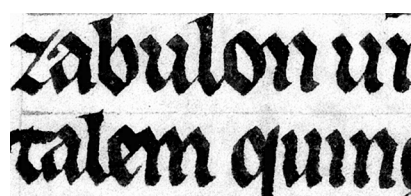 zabulon ui
talem quin